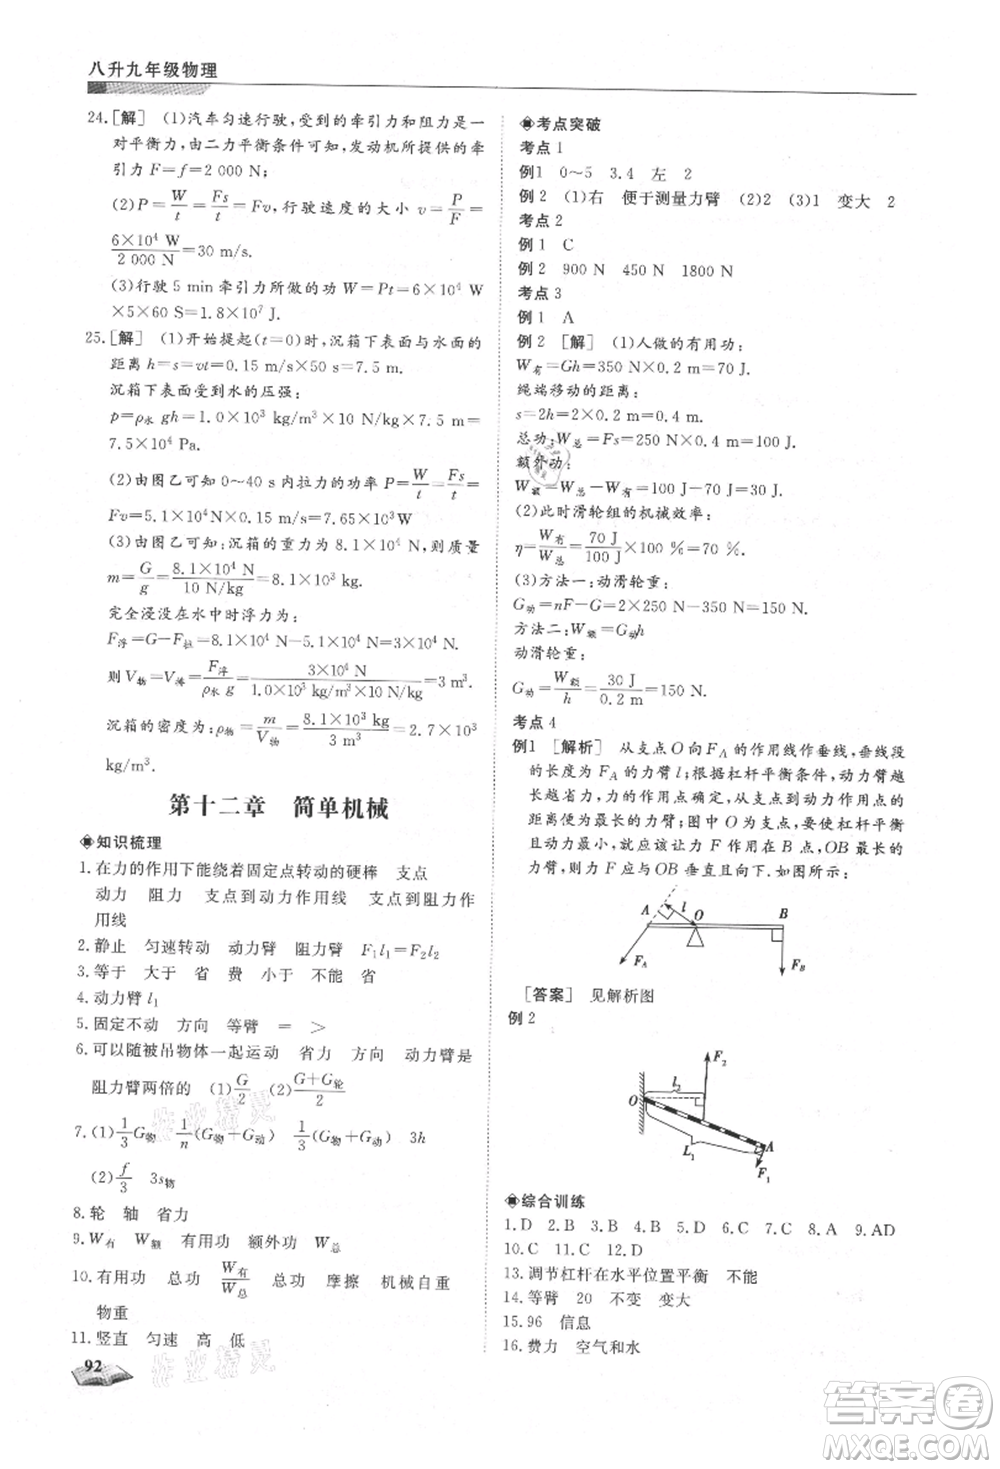 八升九年级物理
24.[解] (1)汽车匀速行驶,受到的牵引力和阻力是一
对平衡力,由二力平衡条件可知,发动机所产生的牵
引力 F=f=2 000 N;
(2)P=W/t=Fs/t=Fv,行驶速度的大小 v=P/F=
6×10⁴ W/2 000 N=30 m/s.
(3)行驶 5 min 牵引力所做的功 W=Pt=6×10⁴ W
×5×60 S=1.8×10⁷ J.
25.[解] (1)开始提起(t=0)时,沉箱下表面与水面的
距离 h=s=vt=0.15 m/s×50 s=7.5 m.
沉箱下表面受到水的压强:
p=ρ水 gh=1.0×10³ kg/m³×10 N/kg×7.5 m=
7.5×10⁴ Pa.
(2)由图乙可知 0～40 s 内拉力的功率 P=W/t=Fs/t=
Fv=5.1×10⁴ N×0.15 m/s=7.65×10³ W
(3)由图乙可知:沉箱的重力为 8.1×10⁴ N,则质量
m=G/g=8.1×10⁴ N/10 N/kg=8.1×10³ kg.
完全浸没在水中时浮力为:
F浮=G-F拉=8.1×10⁴ N-5.1×10⁴ N=3×10⁴ N.
则 V物=V排=F浮/ρ水 g=3×10⁴ N/1.0×10³ kg/m³×10 N/kg=3 m³.
沉箱的密度为:ρ物=m/V物=8.1×10³ kg/3 m³=2.7×10³
kg/m³.
第十二章 简单机械
知识梳理
1.在力的作用下能绕着固定点转动的硬棒 支点
动力 阻力 支点到动力作用线 支点到阻力作
用线
2.静止 匀速转动 动力臂 阻力臂 F₁l₁=F₂l₂
3.等于 大于 省 费 小于 不能 省
4.动力臂 l₁
5.固定不动 方向 等臂 = >
6.可以随被吊物体一起运动 省力 方向 动力臂是
阻力臂两倍的 (1)G/2 (2)G+G轮/2
7.(1)1/3 G物 1/n(G物+G动) 1/3(G物+G动) 3h
(2)f/3 3s物
8.轮 轴 省力
9.W有 W额 有用功 额外功 W总
10.有用功 总功 W有/W总 总功 摩擦 机械自重
物重
11.竖直 匀速 高 低
92
考点突破
考点 1
例1 0～5 3.4 左 2
例 2 (1)右 便于测量力臂 (2)2 (3)1 变大 2
考点 2
例 1 C
例 2 900 N 450 N 1800 N
考点 3
例 1 A
例 2 [解] (1)人做的有用功:
W有=Gh=350 N×0.2 m=70 J
绳端移动的距离:
s=2h=2×0.2 m=0.4 m.
总功:W总=Fs=250 N×0.4 m=100 J.
额外功:
W额=W总-W有=100 J-70 J=30 J
(2)此时滑轮组的机械效率:
η=W有/W总=70 J/100 J×100 %=70 %.
(3)方法一:动滑轮重:
G动=nF-G=2×250 N-350 N=150 N.
方法二:W额=G动h
动滑轮重:
G动=W额/h=30 J/0.2 m=150 N.
考点 4
例1 [解析] 从支点 O 向 F_A 的作用线作垂线,垂线段
的长度为 F_A 的力臂 l;根据杠杆平衡条件,动力臂越
长越省力(即动力越小),力的作用点离杠杆的支点的
距离应尽量最长;图中 O 为支点,要使杠杆平衡
且动力最小,就应该让阻力 F 作用在 B 点且 OB 为力
臂,故 F 应与 OB 垂直且向下.如图所示:
A l O B
F_A F_B
[答案] 见解析图
例 2
F₂
l₂
O
A
L₁ F₁
综合训练
1.D 2.B 3.B 4.B 5.C 6.C 7.C 8.A 9.AD
10.C 11.C 12.D
13.调节杠杆在水平位置平衡 不能
14.等臂 20 不变 变大
15.96 信息
16.费力 空气和水
作业精灵
作业精灵
答案卷
MXQE.COM